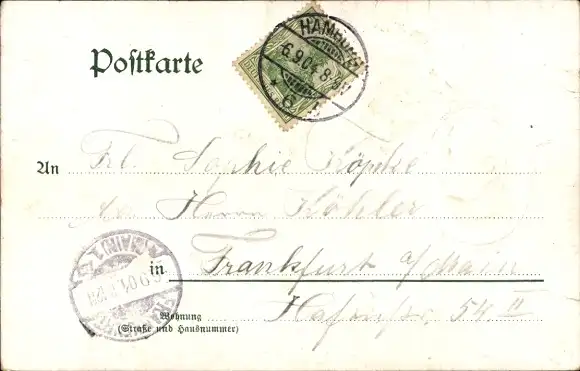 Postkarte
HAMBURG
6.9.01. 8-9N
An Frl. Sophie Köpke
Herrn Köhler
in Frankfurt a/Main
54 II
Wohnung
(Straße und Hausnummer)